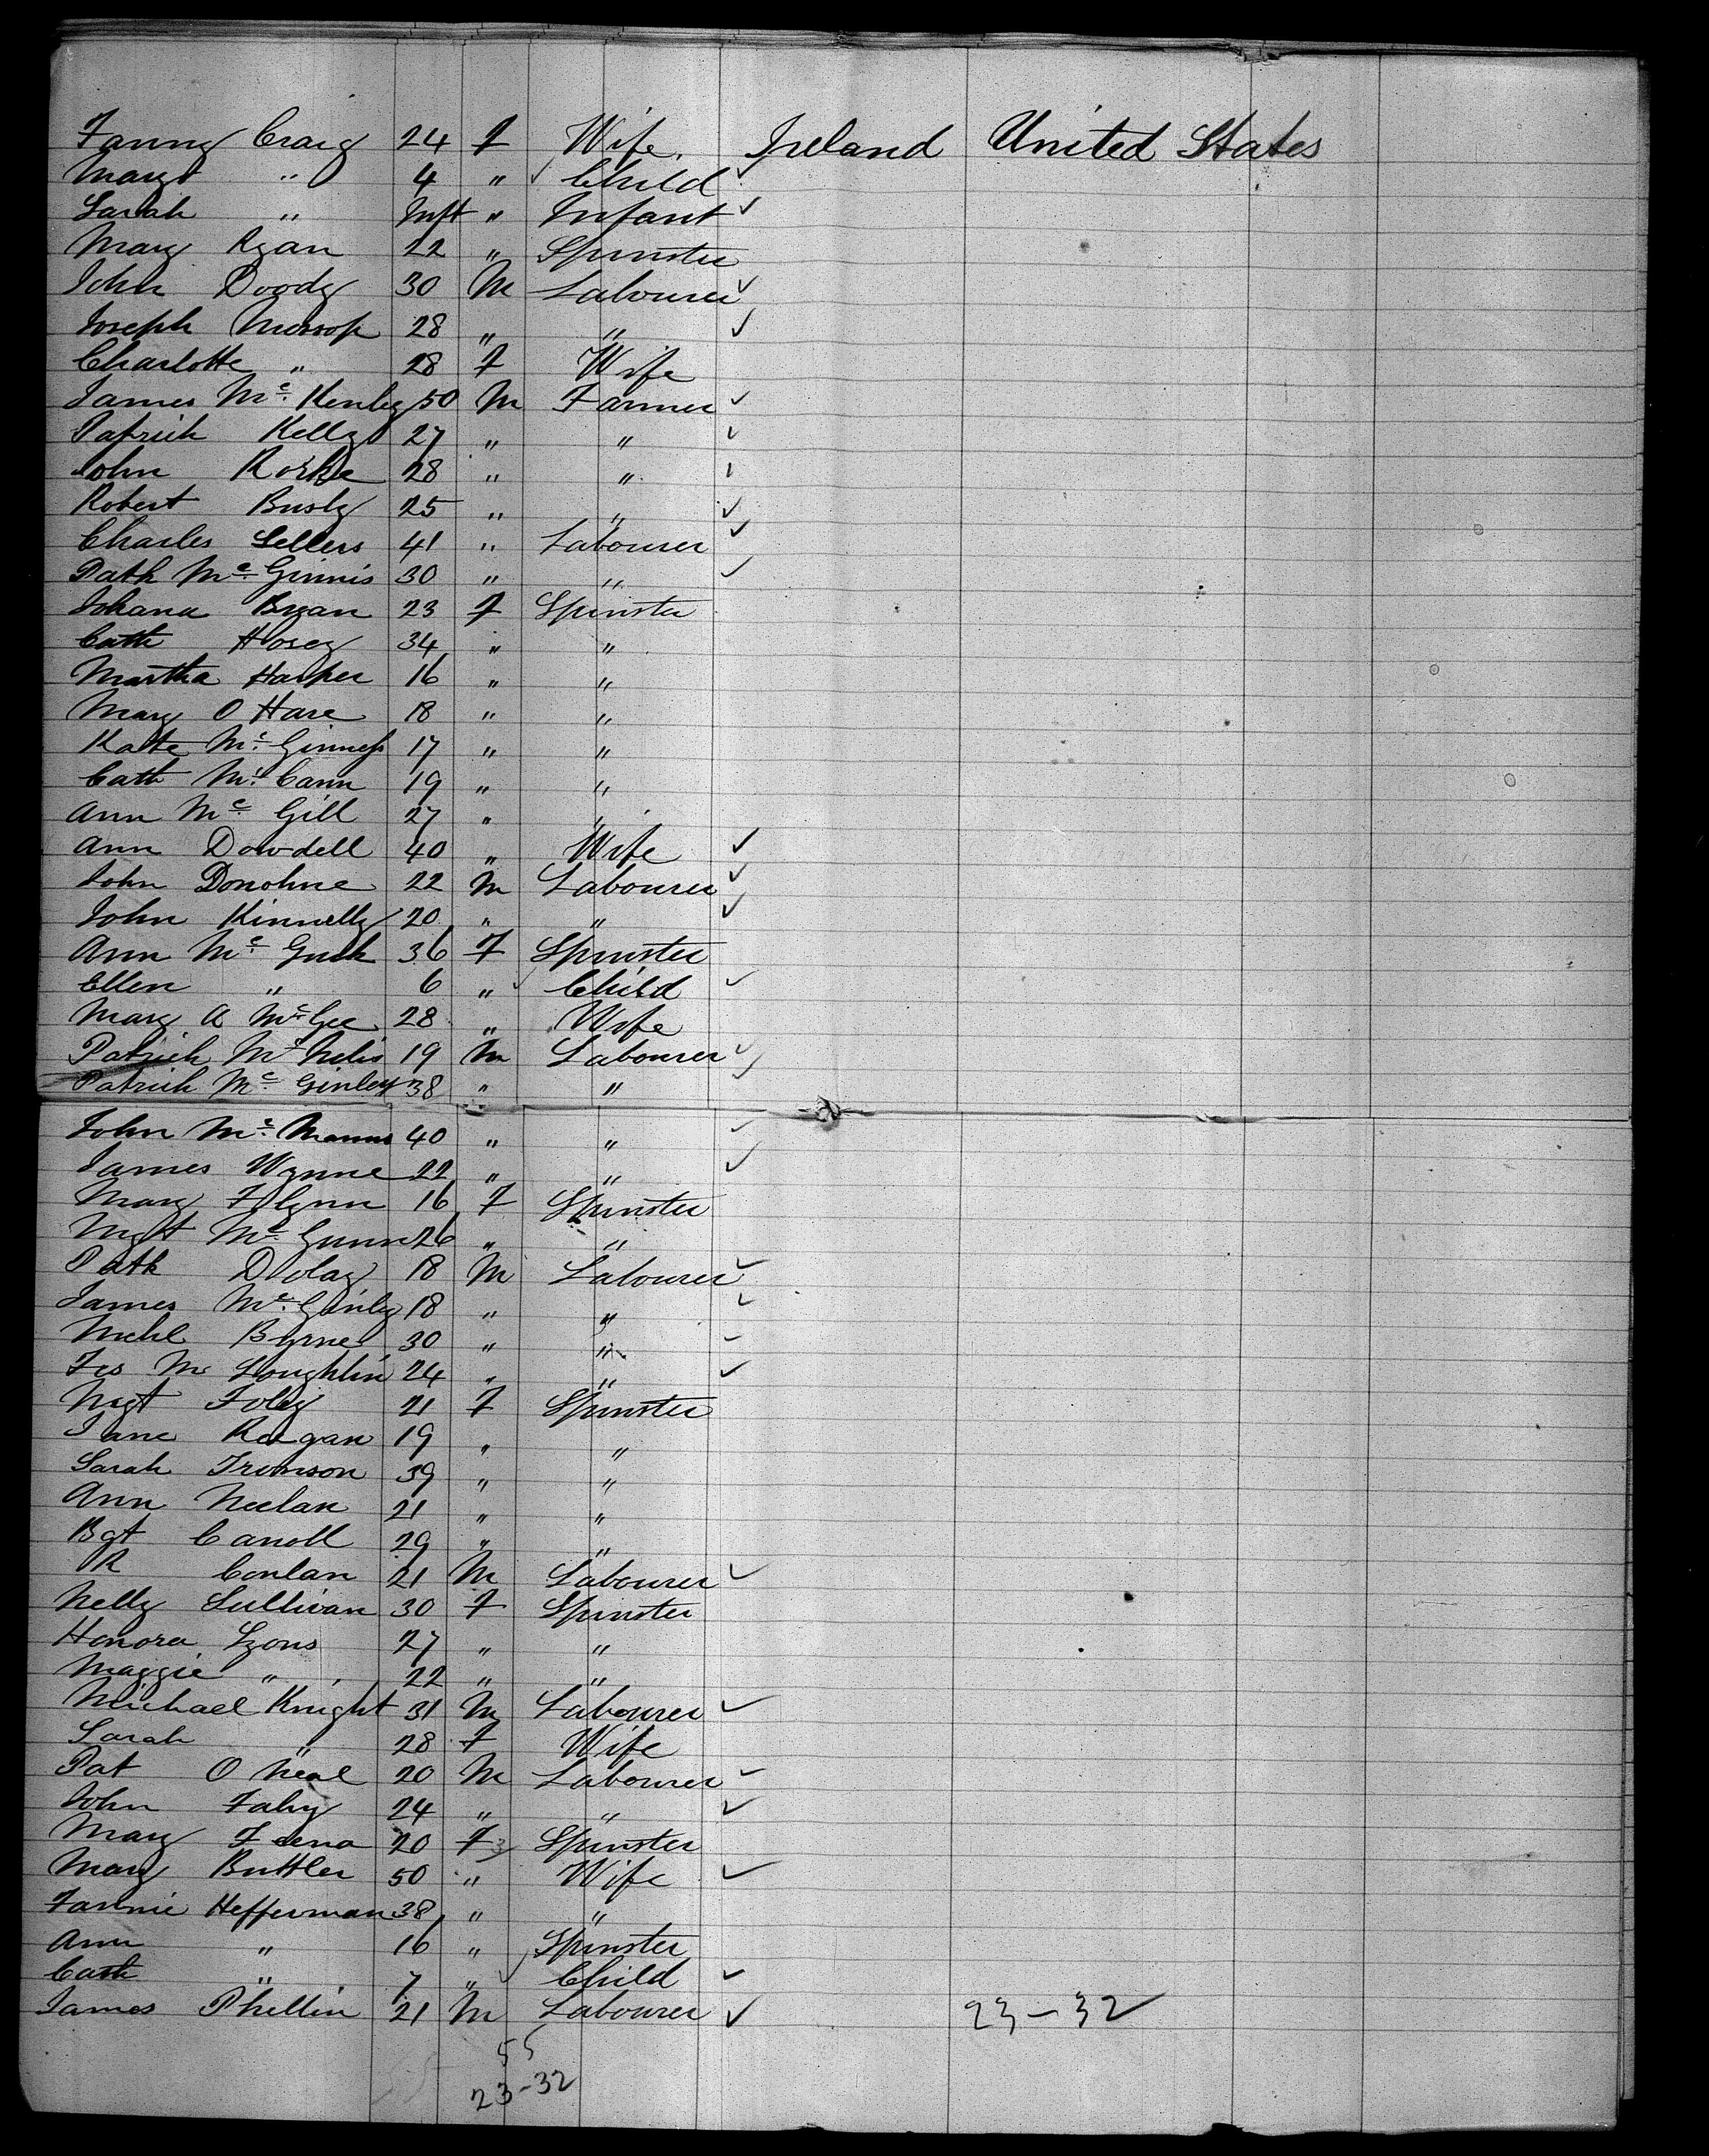 Fanny Craig 24 F Wife. Ireland United States
Margt " 4 " ✓ Child ✓
Sarah " Inft " Infant ✓
Mary Ryan 22 " Spinster
John Doody 30 M Labourer ✓
Joseph Messop 28 " " ✓
Charlotte " 28 F Wife
James Mc. Kenley 50 M Farmer ✓
Patrick Kelly 27 " " ✓
John Rorke 28 " "
Robert Busby 25 " " ✓
Charles Sellers 41 " Labourer ✓
Patk Mc. Ginnis 30 " " ✓
Johana Bryan 23 F Spinster
Cath Hosey 34 " "
Martha Harper 16 " "
Mary O Hare 18 " "
Kate Mc. Ginness 17 " "
Cath Mc. Cann 19 " "
Ann Mc Gill 27 " "
Ann Dowdell 40 " Wife ✓
John Donohue 22 M Labourer ✓
John Kinnelly 20 " " ✓
Ann Mc. Gurk 36 F Spinster
Ellen " 6 " ✓ Child ✓
Mary A McGee 28 " Wife
Patrick Mc Nelis 19 M Labourer ✓
Patrick Mc. Ginley 38 " " ✓
John Mc. Manus 40 " " ✓
James Wynne 22 " " ✓
Mary Flynn 16 F Spinster
Mgt Mc. Gunn 26 " "
Patk Dolay 18 M Labourer ✓
James Mc. Ginley 18 " " ✓
Michl Byrne 30 " " ✓
Fcs Mc Loughlin 24 " " ✓
Mgt Foley 21 F Spinster
Jane Reegan 19 " "
Sarah Tromson 39 " "
Ann Neelan 21 " "
Bgt Caroll 29 " "
R Conlan 21 M Labourer ✓
Nelly Sullivan 30 F Spinster
Honora Lyons 27 " "
Maggie " 22 " "
Michael Knight 31 M Labourer ✓
Sarah " 28 F Wife
Pat O Neal 20 M Labourer ✓
John Fahy 24 " " ✓
Mary Feena 20 F Spinster
Mary Buttler 50 " Wife ✓
Fannie Hefferman 38 " "
Ann " 16 " Spinster
Cath " 7 " ✓ Child ✓
James Phellin 21 M Labourer ✓ 23-32
55
23-32